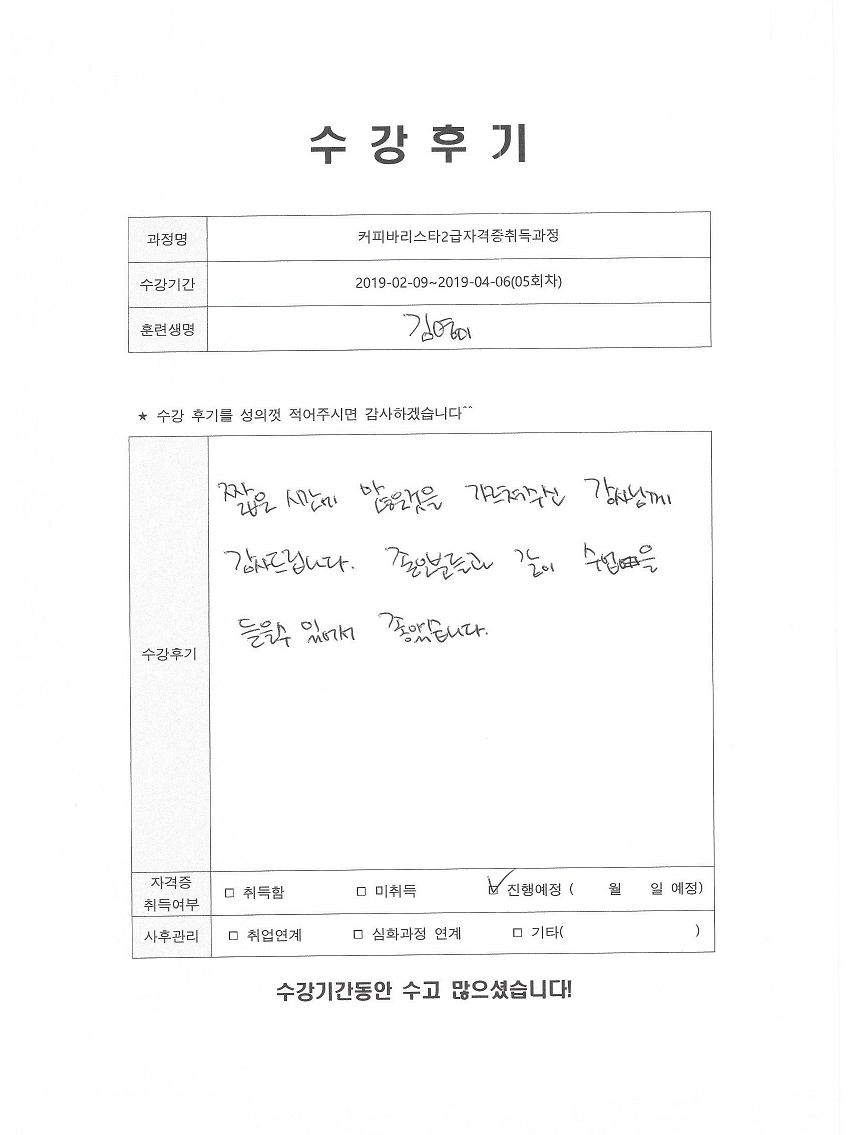 수 강 후 기
과정명 커피바리스타2급자격증취득과정
수강기간 2019-02-09~2019-04-06(05회차)
훈련생명 김영미
★ 수강 후기를 성의껏 적어주시면 감사하겠습니다^^
수강후기
짧은 시간에 많은것을 가르쳐주신 강사님께
감사드립니다. 좋은분들과 같이 수업을
들을수 있어서 좋았습니다.
자격증 취득여부 □ 취득함 □ 미취득 ☑ 진행예정 ( 월 일 예정)
사후관리 □ 취업연계 □ 심화과정 연계 □ 기타( )
수강기간동안 수고 많으셨습니다!